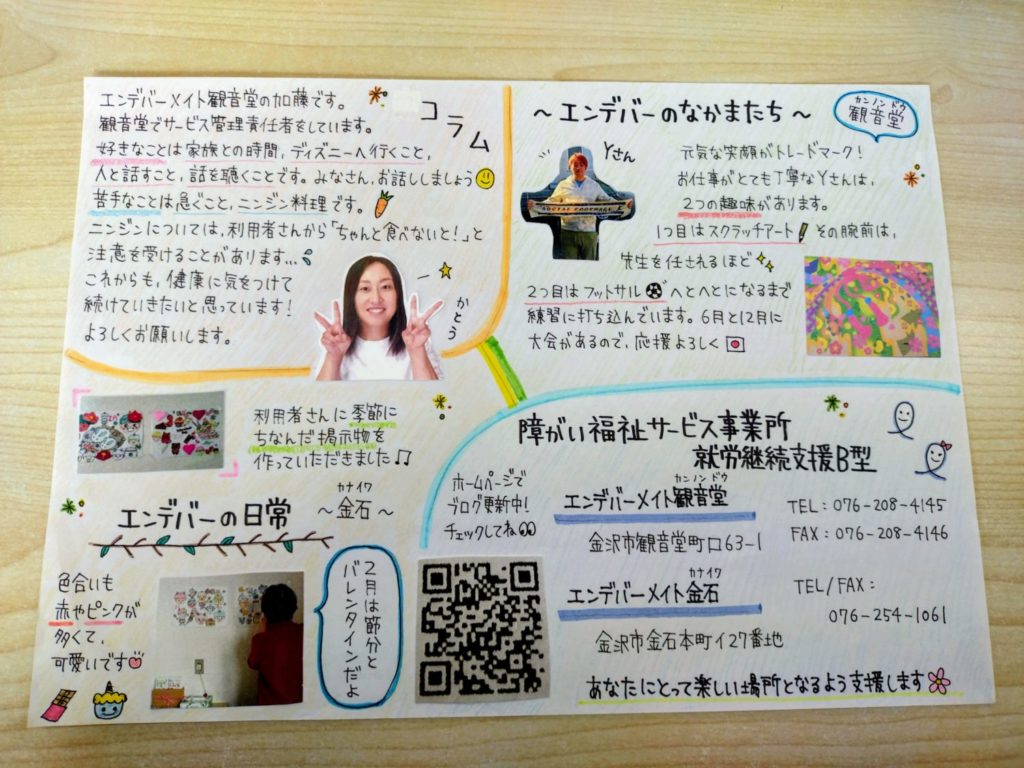 コラム
エンデバーメイト観音堂の加藤です。
観音堂でサービス管理責任者をしています。
好きなことは家族との時間，ディズニーへ行くこと，
人と話すこと，話を聴くことです。みなさん，お話ししましょう
苦手なことは急ぐこと，ニンジン料理です。
ニンジンについては，利用者さんから「ちゃんと食べないと！」と
注意を受けることがあります…
これからも，健康に気をつけて
続けていきたいと思っています！
よろしくお願いします。
かとう
～エンデバーのなかまたち～
カンノンドウ
観音堂
Yさん
元気な笑顔がトレードマーク！
お仕事がとても丁寧なYさんは，
2つの趣味があります。
1つ目はスクラッチアート その腕前は，
先生を任されるほど
2つ目はフットサル へとへとになるまで
練習に打ち込んでいます。6月と12月に
大会があるので，応援よろしく
利用者さんに季節に
ちなんだ掲示物を
作っていただきました♫
エンデバーの日常
カナイワ
～金石～
色合いも
赤やピンクが
多くて，
可愛いです
2月は節分と
バレンタインだよ
障がい福祉サービス事業所
就労継続支援B型
ホームページで
ブログ更新中！
チェックしてね
カンノンドウ
エンデバーメイト観音堂
金沢市観音堂町口63-1
TEL：076-208-4145
FAX：076-208-4146
カナイワ
エンデバーメイト金石
金沢市金石本町イ27番地
TEL/FAX：
076-254-1061
あなたにとって楽しい場所となるよう支援します